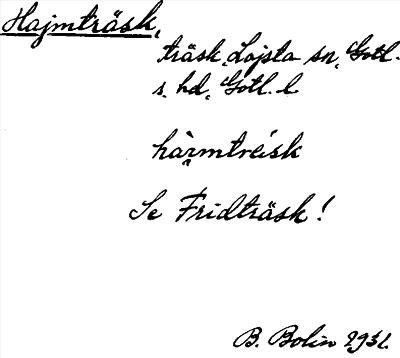 Hajmträsk,
träsk, Lojsta sn, Gotl.
s. hd, Gotl. l
Se Fridträsk!
B. Bolin 1931.